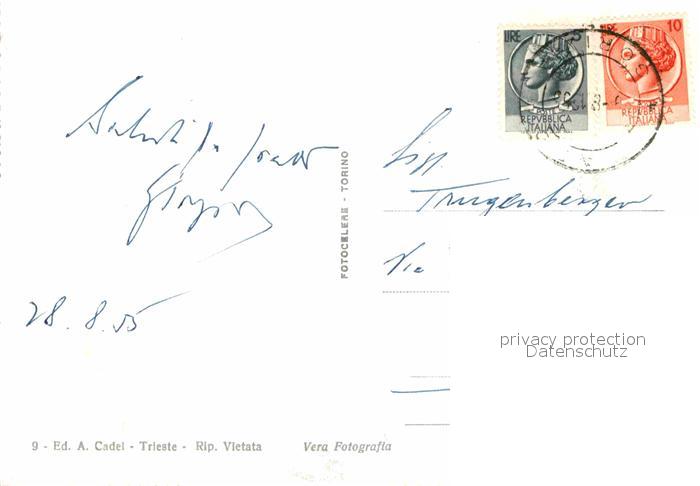 LIRE 5
POSTE
REPVBBLICA
ITALIANA
LIRE 10
REPVBBLICA
ITALIANA
Saluti
28.8.55
FOTOCELERE - TORINO
Sigg.
Trugenberger
Via
privacy protection
Datenschutz
9 - Ed. A. Cadel - Trieste - Rip. Vietata
Vera Fotografia